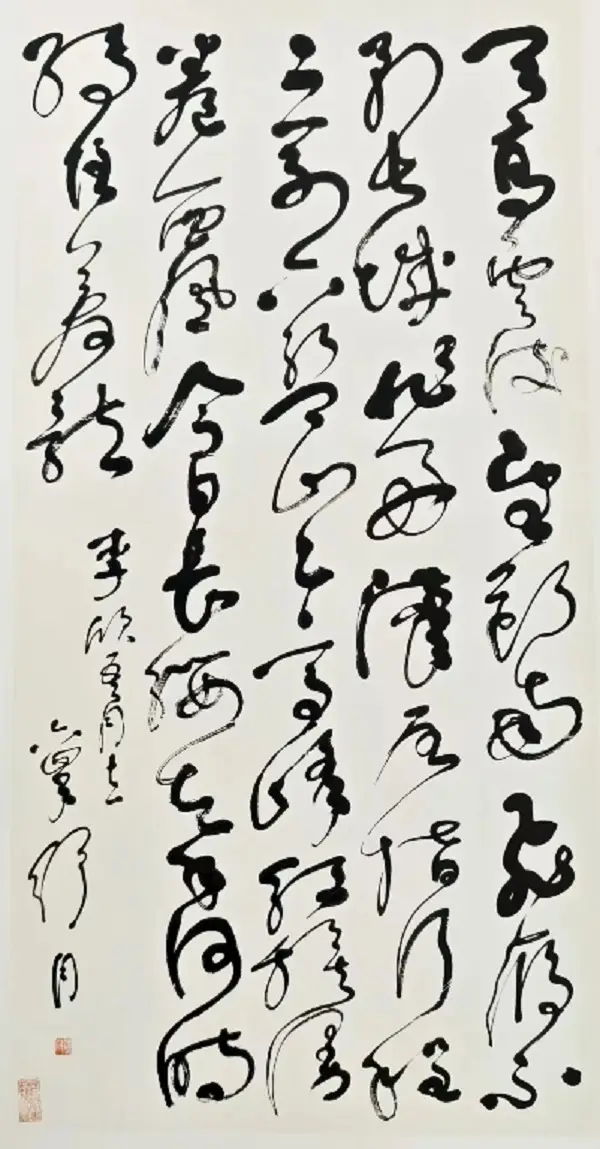 天高雲淡望斷南飛雁不
到長城非好漢屈指行程
二萬六盤山上高峰紅旗漫
卷西風今日長纓在手何時
縛住蒼龍
李欣同志